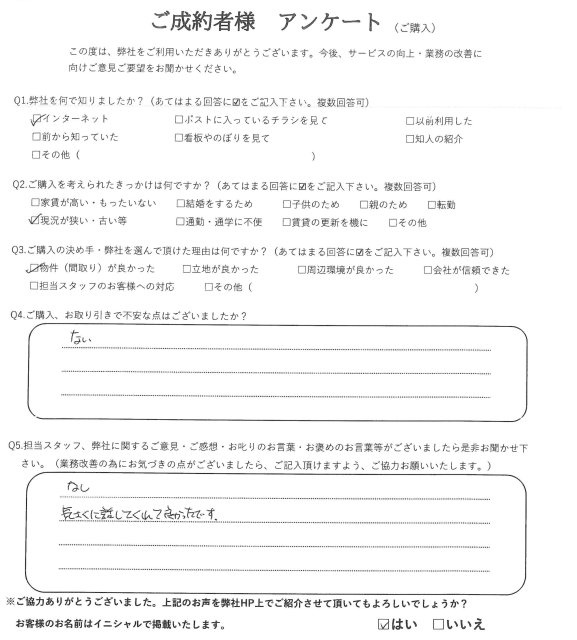 ご成約者様　アンケート（ご購入）
この度は、弊社をご利用いただきありがとうございます。今後、サービスの向上・業務の改善に
向けご意見ご要望をお聞かせください。
Q1.弊社を何で知りましたか？（あてはまる回答に☑をご記入下さい。複数回答可）
☑インターネット　□ポストに入っているチラシを見て　□以前利用した
□前から知っていた　□看板やのぼりを見て　□知人の紹介
□その他（　）
Q2.ご購入を考えられたきっかけは何ですか？（あてはまる回答に☑をご記入下さい。複数回答可）
□家賃が高い・もったいない　□結婚をするため　□子供のため　□親のため　□転勤
☑現況が狭い・古い等　□通勤・通学に不便　□賃貸の更新を機に　□その他
Q3.ご購入の決め手・弊社を選んで頂けた理由は何ですか？（あてはまる回答に☑をご記入下さい。複数回答可）
☑物件（間取り）が良かった　□立地が良かった　□周辺環境が良かった　□会社が信頼できた
□担当スタッフのお客様への対応　□その他（　）
Q4.ご購入、お取り引きで不安な点はございましたか？
ない
Q5.担当スタッフ、弊社に関するご意見・ご感想・お叱りのお言葉・お褒めのお言葉等がございましたら是非お聞かせ下
さい。（業務改善の為にお気づきの点がございましたら、ご記入頂けますよう、ご協力お願いいたします。）
なし
に話してくれて良かったです。
※ご協力ありがとうございました。上記のお声を弊社HP上でご紹介させて頂いてもよろしいでしょうか？
お客様のお名前はイニシャルで掲載いたします。　☑はい　□いいえ